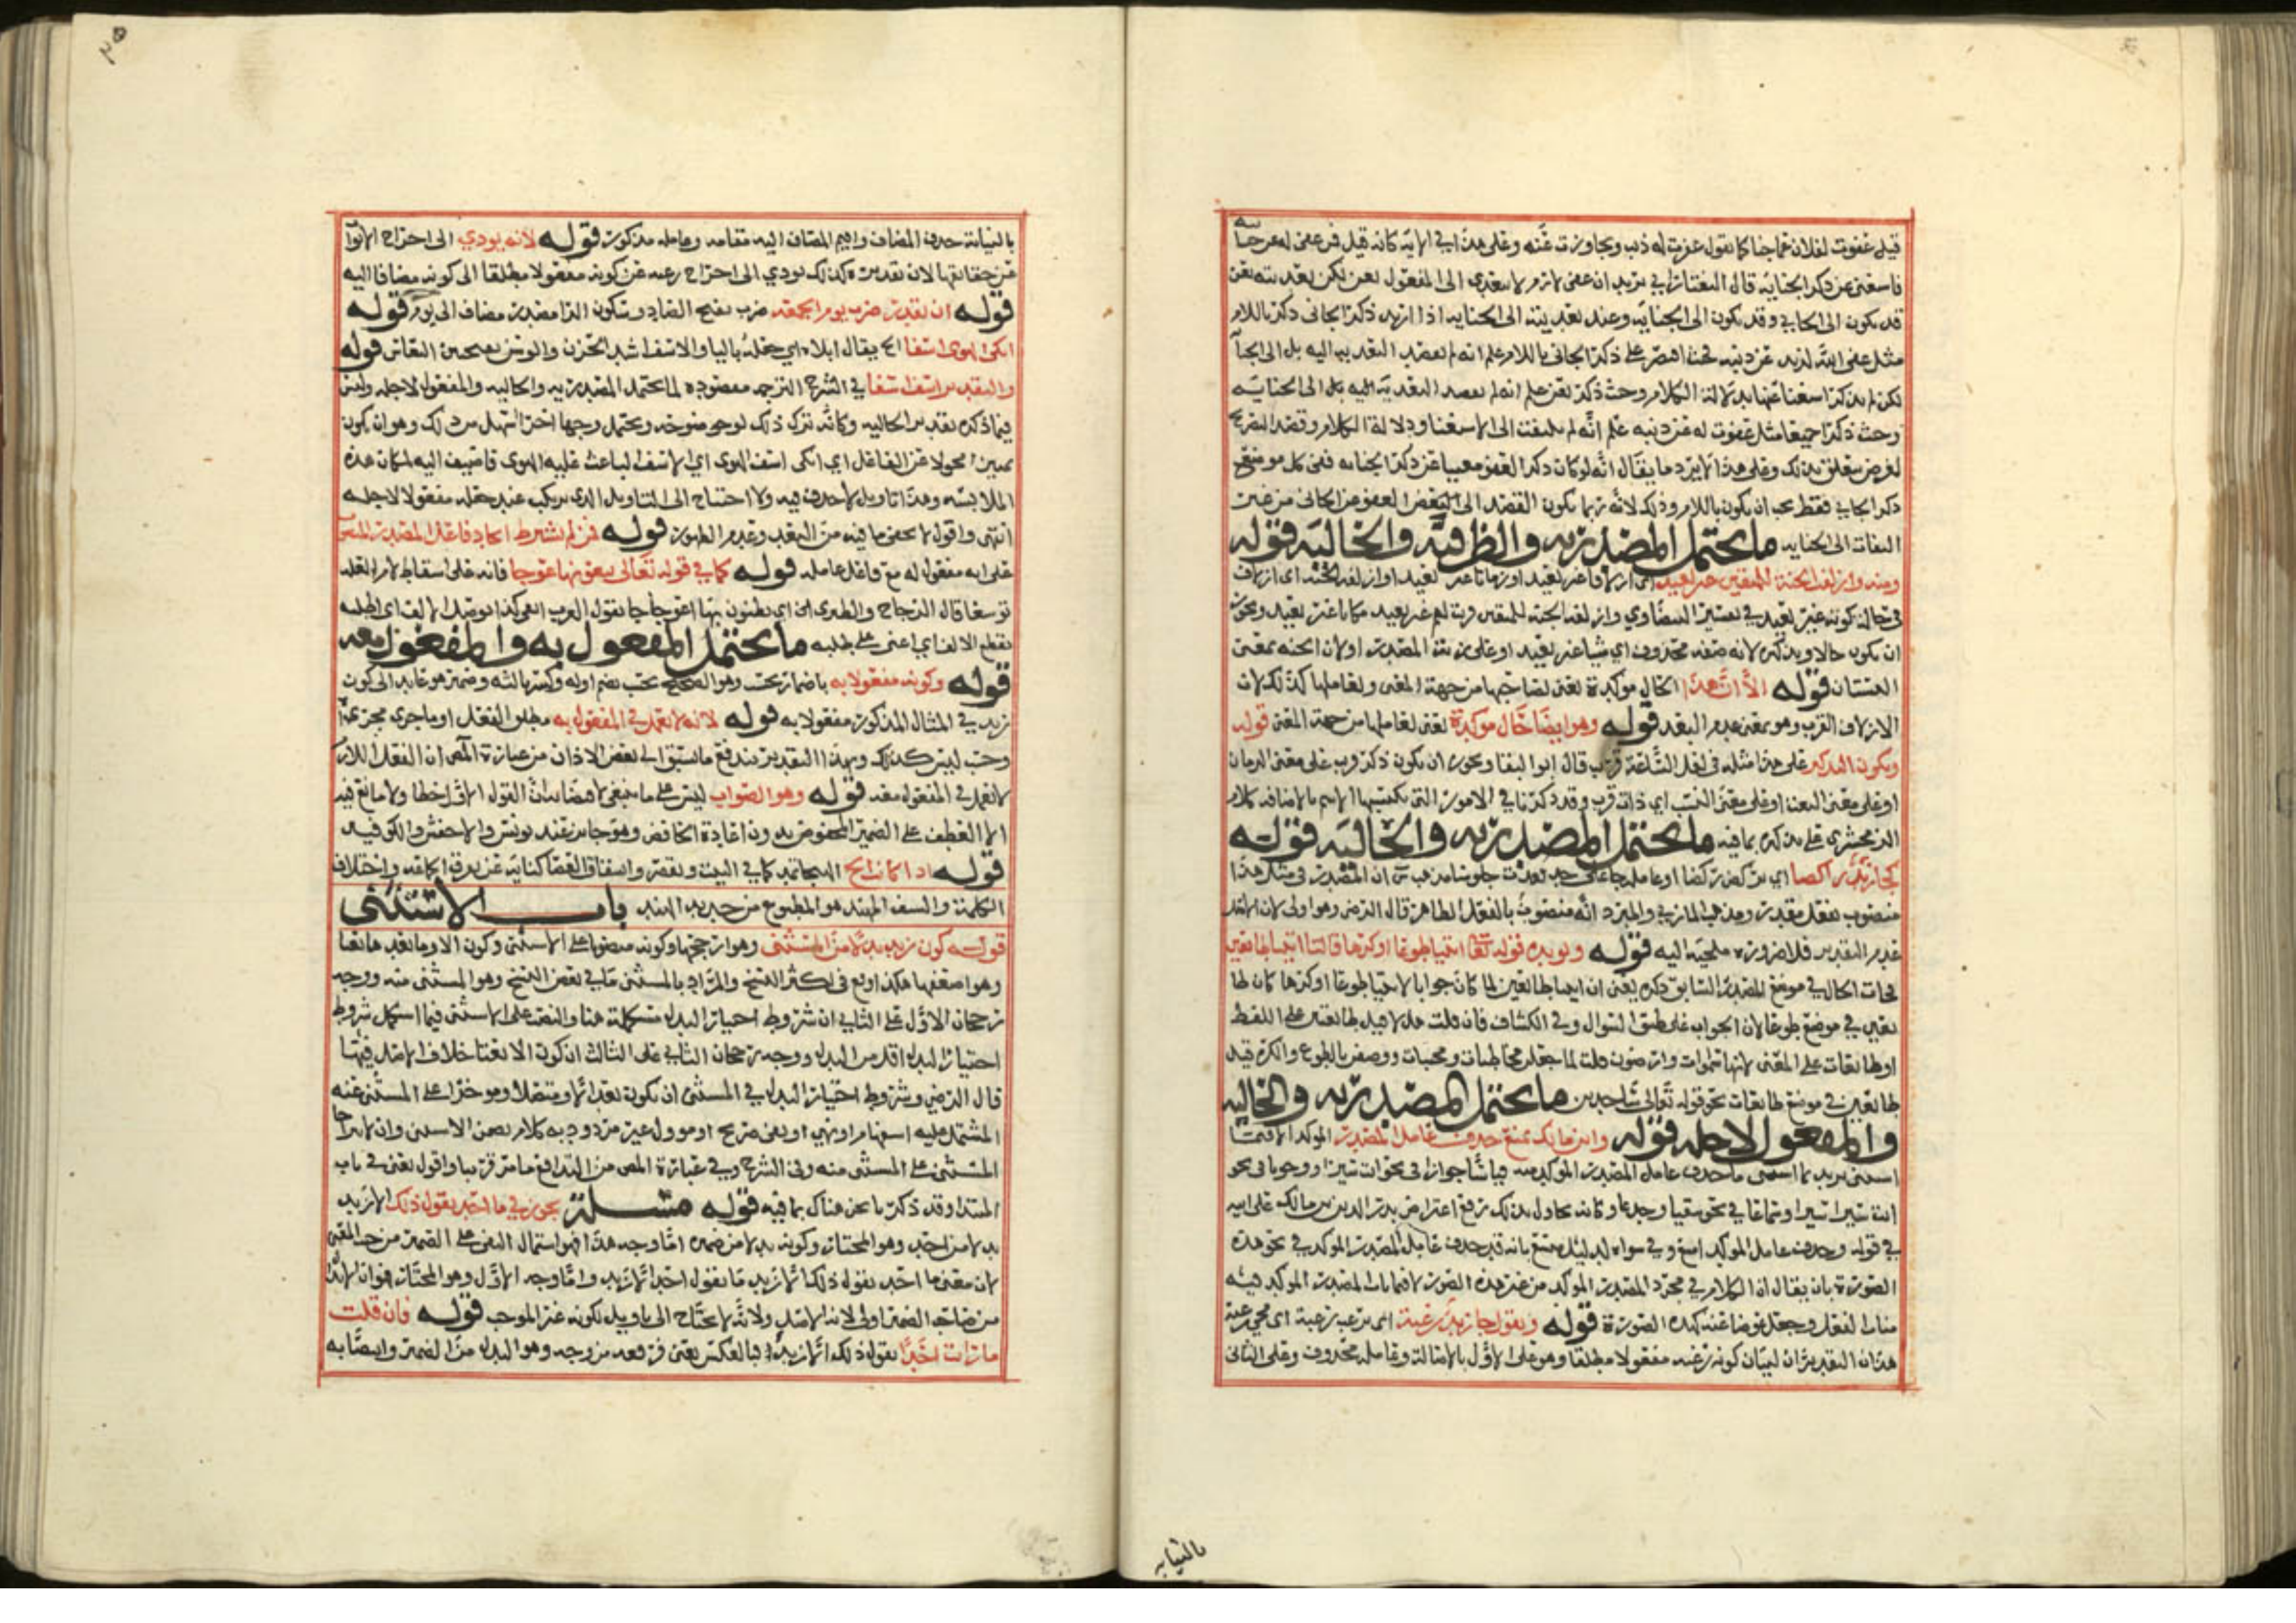 قيل عفوت لفلان عما جنا كما تقول عفرت له ذنبه وتجاوزت عنه وعلى هذا في الاية كانه قيل فمن عفى له عن جنايته
فاستغنى عن ذكر الجناية قال التفتازاني يريد ان عفى لازم لا يتعدى الى المفعول بعن لكن تعديته بعن
قد يكون الى الجاني وقد يكون الى الجناية وعند تعديته الى الجناية اذا اريد ذكر الجاني ذكر باللام
مثل عفى الله لزيد عن ذنبه اقتصر على ذكر الجاني باللام علم انه لم يقصد التعدية اليه بل الى الجناية
لكن لم يذكر استغنا عنها بدلالة الكلام وحيث ذكر بعن علم انه لم يقصد التعدية اليه بل الى الجناية
وحيث ذكرا جميعا مثل عفوت له عن ذنبه علم انه لم يلتفت الى الاستغنا ودلالة الكلام وقصد التصريح
لغرض يتعلق بذلك وعلى هذا لا يرد ما يقال انه لو كان ذكر العفو مغنيا عن ذكر الجناية ففي كل موضع
ذكر الجاني فقط يجب ان يكون باللام وذلك لانه ربما يكون القصد الى العفو عن الجاني من غير
التفات الى الجناية ما يحتمل المصدرية والظرفية والحالية قوله
ومنه وازلفت الجنة للمتقين غير بعيد اي ازلافا غير بعيد او زمانا غير بعيد او ازلفته الجنة اي الازلاف
في حالة كونه غير بعيد في تفسير البيضاوي وازلفت الجنة للمتقين قربت لهم غير بعيد مكانا غير بعيد ويجوز
ان يكون حالا وتذكيره لانه صفة محذوف اي شيا غير بعيد او على زنة المصدر او لان الجنة بمعنى
البستان قوله الا ان هذا الحال موكدة يعنى لصاحبها من جهة المعنى ولعاملها كذلك لان
الازلاف القرب وهو بمعنى عدم البعد قوله وهو ايضا حال موكدة يعنى لعاملها من جهة المعنى قوله
ويكون التذكير على هذا مثله في لعل الساعة قريب قال ابو البقا ويجوز ان يكون ذكر قريب على معنى الزمان
او على معنى البعث او على معنى النسب اي ذات قرب وقد ذكرنا في الامور التي يكتسبها الاسم بالاضافة كلام
الزمخشري على تذكيره بما فيه ما يحتمل المصدرية والحالية قوله
كجا زيد ركضا اي يركض ركضا او عامله جا على حد قعدت جلوسا مذهب س ان المصدر في مثل هذا
منصوب بفعل مقدر ومذهب المازني والمبرد انه منصوب بالفعل الظاهر قال الرضى وهو اولى لان الاصل
عدم التقدير فلا ضرورة ملجية اليه قوله ويويده قوله تعالى ائتيا طوعا او كرها قالتا اتينا طائعين
فجات الحال في موضع المصدر السابق ذكره يعنى ان اتينا طائعين لما كان جوابا لائتيا طوعا او كرها كان طا
يعين في موضع طوعا لان الجواب على طبق السوال وفي الكشاف فان قلت هلا قيل طائعتين على اللفظ
او طائعات على المعنى لانها سموات وارضون قلت لما جعلن مخاطبات ومجيبات ووصفن بالطوع والكره قيل
طائعين في موضع طائعات نحو قوله تعالى ساجدين ما يحتمل المصدرية والحالية
والمفعول لاجله قوله وابن مالك يمنع حذف عامل المصدر الموكد الا فيما
استثنى يريد بما استثنى ما حذف عامل المصدر الموكد فيه قياسا جوازا في نحو انت سيرا ووجوبا في نحو
انت سيرا سيرا وسماعا في نحو سقيا وجدعا وكانه يحاول بذلك رفع اعتراض بدر الدين بن مالك على ابيه
في قوله وحذف عامل الموكد امتنع وفي سواه لدليل متسع بانه قد حذف عامل المصدر الموكد في نحو هذه
الصورة بان يقال ان الكلام في مجرد المصدر الموكد من غير هذه الصور لا فيما ناب المصدر الموكد فيه
مناب الفعل وجعل عوضا عنه كهذه الصورة قوله وتقول جا زيد رغبة اي يرغب رغبة اي مجي رغبة
هذان التقديران لبيان كونه رغبة مفعولا مطلقا وهو على الاول بالاصالة وعامله محذوف وعلى الثانى
بالنيابة
بالنيابة حذف المضاف واقيم المضاف اليه مقامه وعامله مذكور قوله لانه يودي الى اخراج الابواب
عن حقائقها لان تقديره كذلك يودي الى اخراج رغبة عن كونه مفعولا مطلقا الى كونه مضافا اليه
قوله ان تقدير ضرب يوم الجمعة ضرب بفتح الضاد وسكون الرا مصدر مضاف الى يوم قوله
ابلى الهوى اسفا الخ يقال ابلاه اي جعله باليا والاسف اشد الحزن والوسن بفتحتين النعاس قوله
والتقدير اسف اسفا في الشرح الترجمة معقودة لما يحتمل المصدرية والحالية والمفعول لاجله وليس
فيما ذكره تقدير الحالية وكانه ترك ذلك لوجه وضوحه ويحتمل وجها اخر اسهل من ذلك وهو ان يكون
تمييزا محولا عن الفاعل اي ابلى اسف الهوى اي الاسف الباعث عليه الهوى فاضيف اليه لمكان هذه
الملابسة وهذا تاويل لا حذف فيه ولا احتياج الى التاويل الذي يرتكب عند جعله مفعولا لاجله
انتهى واقول لا يخفى ما فيه من البعد وعدم الظهور قوله فمن لم يشترط اتحاد فاعل المصدر المعلل
على انه مفعول له مع فاعل عامله قوله كما في قوله تعالى يبغونها عوجا فانه على اسقاط لام العلة
توسعا قال الزجاج والطبرى اي يطلبون بها اعوجاجا تقول العرب ابغني كذا بوصل الالف اى اطلبه
بقطع الالف اي اعنى على طلبه ما يحتمل المفعول به والمفعول معه
قوله وكونه مفعولا به باضمار يحسب وهو الصحيح يحسب بضم اوله وكسر ثالثه وضميره عايد الى كون
زيد في المثال المذكور مفعولا به قوله لانه لا يعمل في المفعول به مطلق الفعل او ما جرى مجراه
وحسب ليس كذلك وبهذا التقدير يندفع ما سبق الى بعض الاذهان من عبارة المص ان الفعل اللازم
لا يعمل في المفعول معه قوله وهو الصواب ليس على ما ينبغي لاقتضائه ان القول الاخر خطا ولا مانع فيه
الا العطف على الضمير المخفوض بدون اعادة الخافض وهو جايز عند يونس والاخفش والكوفيين
قوله اذا كانت الهيجا الخ الهيجا تمد كما في البيت وتقصر وانشقاق العصا كناية عن تفرق الجماعة واختلاف
الكلمة والسيف المهند هو المطبوع من حديد الهند باب الاستثنى
قوله كون زيد بدلا من المستثنى وهو ارجحها وكونه منصوبا على الاستثنى وكون الا وما بعدها نعتا
وهو اضعفها هكذا وقع في اكثر النسخ والمراد بالمستثنى ما في بعض النسخ وهو المستثنى منه ووجه
رجحان الاول على الثاني ان شروط اختيار البدل متكملة هنا والنصب على الاستثنى فيما استكمل شروط
اختيار البدل اقل من البدل ووجه رجحان الثاني على الثالث ان كون الا نعتا خلاف الاصل فيها
قال الرضي وشروط اختيار البدل في المستثنى ان يكون بعد الا ومتصلا وموخرا على المستثنى منه
المشتمل عليه استفهام او نهي او نفى صريح او موول غير مردود به كلام تضمن الاستثنى وان لا يتراخا
المستثنى على المستثنى منه وفى الشرح وفي عبارة المص من التدافع ما مر قريبا واقول يعنى في باب
المبتدا وقد ذكرنا نحن هناك بما فيه قوله مسئلة يجوز في ما احد يقول ذلك الا زيد
بدلا من احد وهو المختار وكونه بدلا من ضميره اما وجه هذا فهو استمال النفي على الضمير من حيث المعنى
لان معنى ما احد يقول ذلك الا زيد ما يقول احد الا زيد واما وجه الاول وهو المختار فهو ان الابدال
من صاحب الضمير اولى لانه الاصل ولانه لا يحتاج الى تاويل لكونه غير الموجب قوله فان قلت
ما رايت احدا يقول ذلك الا زيدا فبالعكس يعنى فرفعه من وجه وهو البدل من الضمير وانتصابه